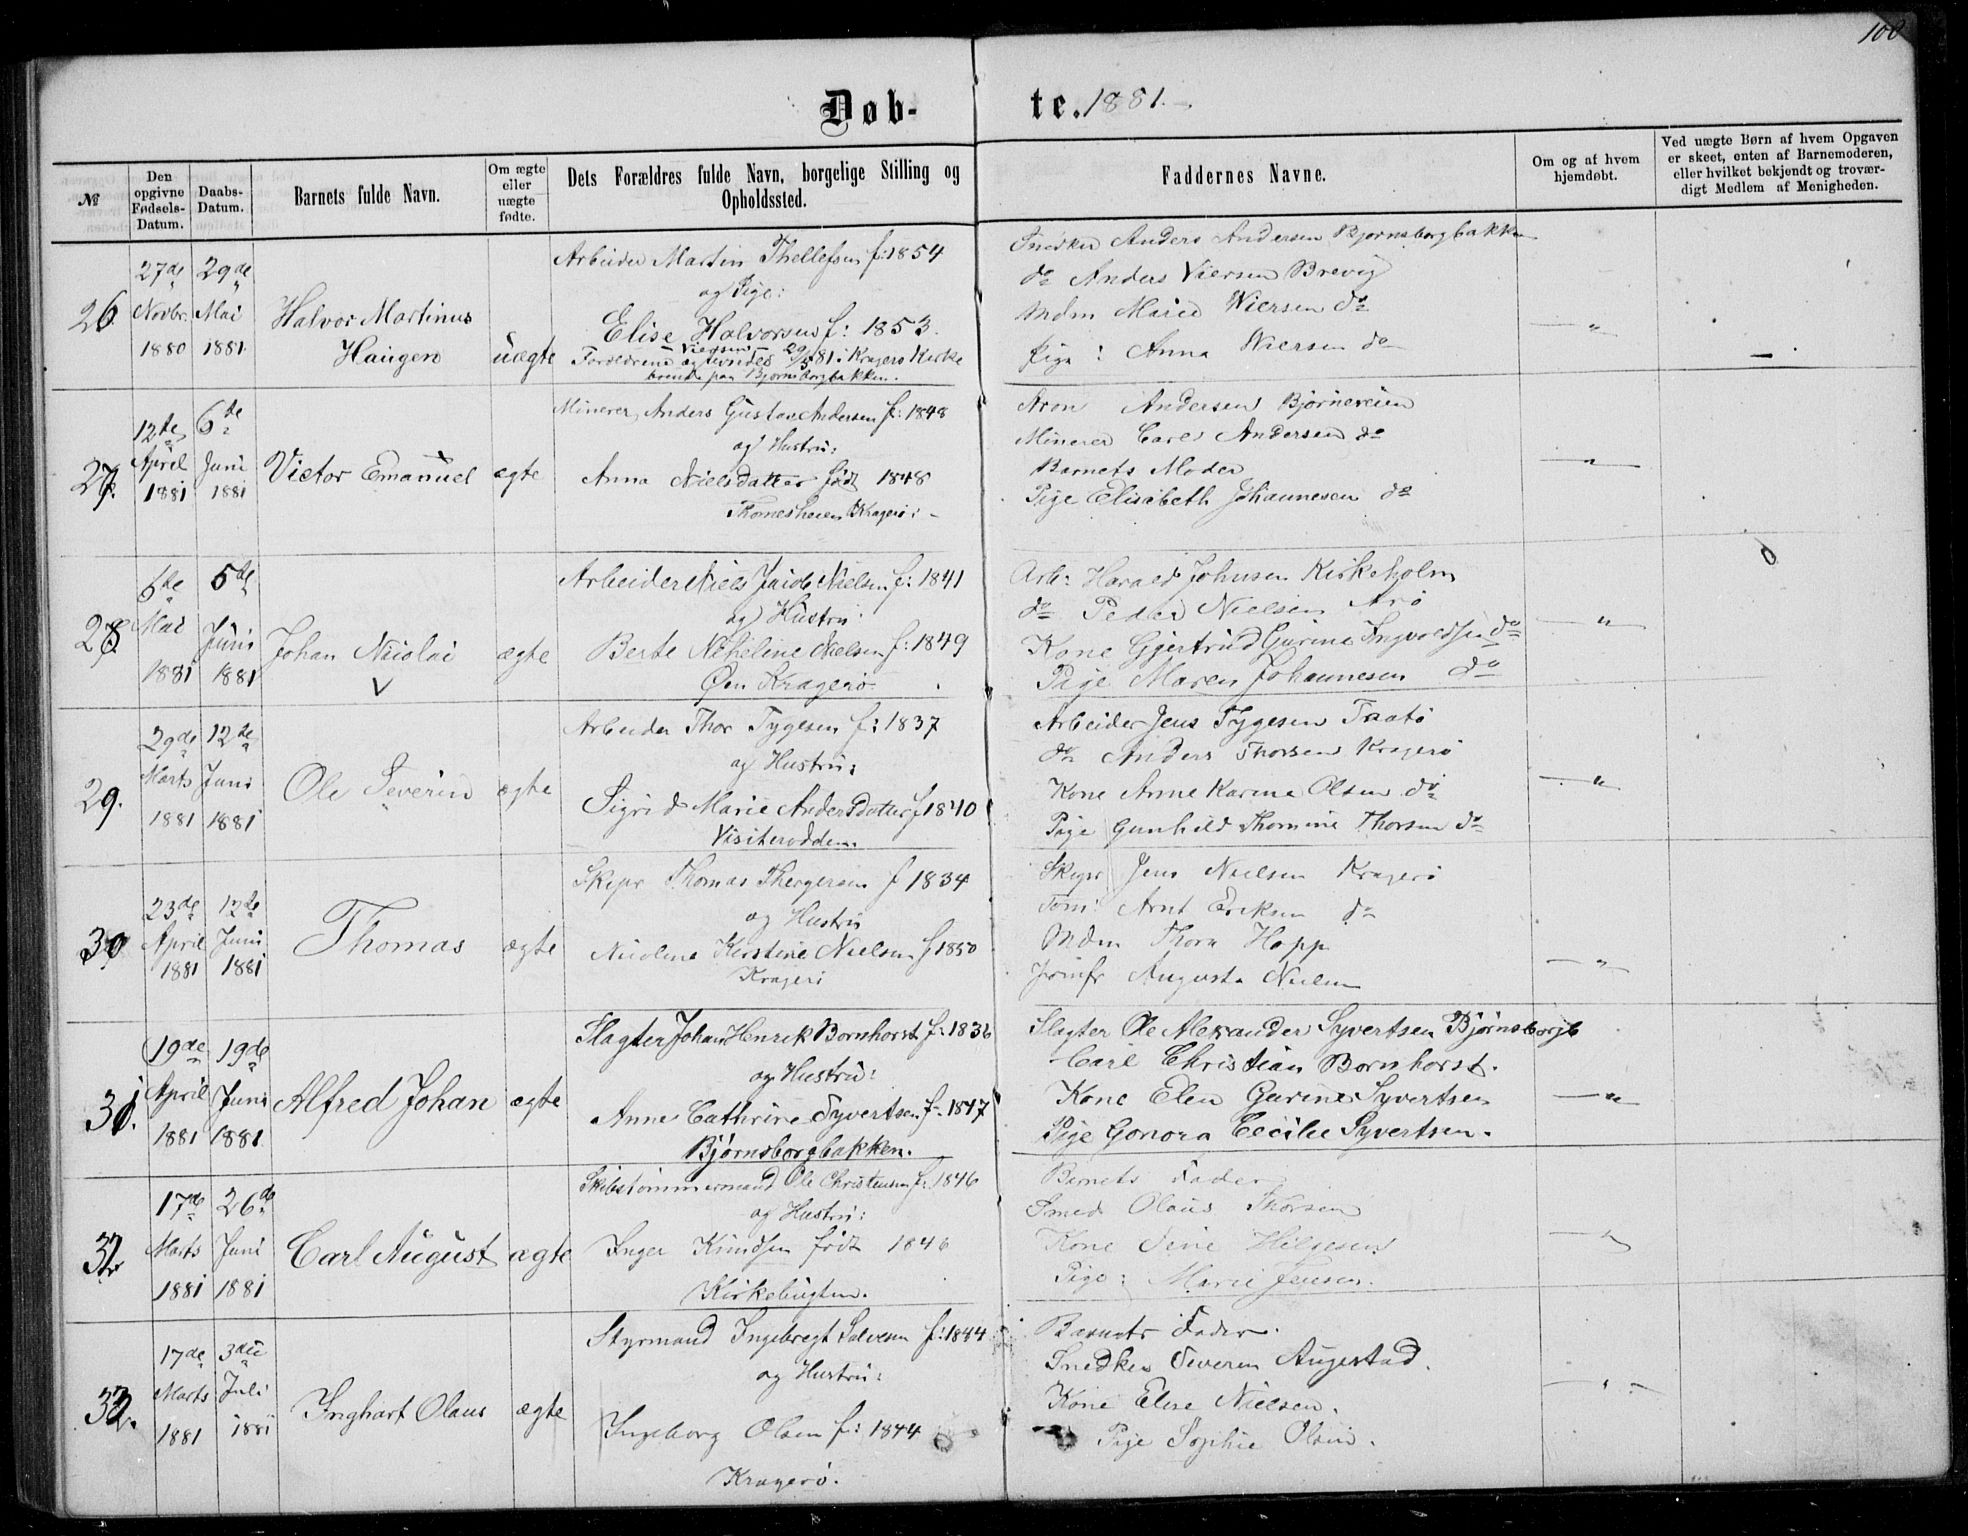 100
Døb- te. 1881.
№
Den opgivne Fødsels-Datum.
Daabs-Datum.
Barnets fulde Navn.
Om ægte eller uægte fødte.
Dets Forældres fulde Navn, borgelige Stilling og Opholdssted.
Faddernes Navne.
Om og af hvem hjemdøbt.
Ved uægte Børn af hvem Opgaven er skeet, enten af Barnemoderen, eller hvilket bekjendt og troværdigt Medlem af Menigheden.
26.
27de Novbr. 1880
29de Mai 1881
Halvor Martinus Haugen
uægte
Arbeider Martin Thellefsen f: 1854
og Pige:
Elise Halvorsen f: 1853.
Viersen
Forældrene 29/5 81 i Kragerø Kirke
boende paa Bjørnsborgbakken.
Snedker Anders Andersen Bjørnsborgbakken
do Anders Viersen Brevig
Mdm Marie Wiersen do
Pige: Anna Wiersen do
— " —
27.
12te April 1881
6te Juni 1881
Victor Emanuel
ægte
Minerer Anders Gustav Andersen f: 1848
og Hustru:
Anna Nielsdatter født 1848
Thomesheien Kragerø:
Aron Andersen Bjørneveien
Minerer Carl Andersen do
Barnets Moder
Pige Elisabeth Johannesen do
— " —
28
6te Mai 1881
5te Juni 1881
Johan Nicolai
ægte
Arbeider Niels Jacob Nielsen f: 1841
og Hustru
Berte Nielsen f: 1849
Øen Kragerø
Arb: Harald Johnsen Kirkeholm
do Peder Nielsen Arø
Kone Gjertrud Gurine Ingvoldsen do
Pige Maren Johannesen do
— " —
29.
29de Marts 1881
12te Juni 1881
Ole Severin
ægte
Arbeider Thor Tygesen f: 1837
og Hustru:
Sigrid Marie Andersdatter f 1840
Visiterodden.
Arbeider Jens Tygesen Taatø
do Anders Thorsen Kragerø
Kone Anne Karine Olsen do
Pige Gunhild Thomine Thorsen do
— " —
30
23de April 1881
12te Juni 1881
Thomas
ægte
Skipr Thomas Thergersen f 1834
og Hustru
Nicoline Kirstine Nielsen f 1850
Kragerø
Skipr Jens Nielsen Kragerø
Tom: Arnt Eriksen do
Mdm Thora Hopp
Jomfr Augusta Nielsen
— " —
31.
19de April 1881
19de Juni 1881
Alfred Johan
ægte
Slagter Johan Henrik Bornhorst f: 1836
og Hustru:
Anne Cathrine Syvertsen f: 1847
Bjørnsborgbakken.
Slagter Ole Alexander Syvertsen Bjørnsborgb
Carl Christian Bornhorst.
Kone Elen Gurine Syvertsen
Pige Gonora Cecilie Syvertsen.
— " —
32
17de Marts 1881
26de Juni 1881
Carl August
ægte
Skibstømmermand Ole Christensen f: 1846
og Hustru:
Inger Knudsen født 1846
Kirkebugten.
Barnets Fader
Smed Olaus Thorsen
Kone Sine Helgesen
Pige: Marie Jensen.
— " —
33.
17de Marts 1881
3die Juli 1881
Inghart Olaus
ægte
Styrmand Ingebregt Salvesen f: 1844
og Hustru:
Ingeborg Olsen f: 1844
Kragerø.
Barnets Fader.
Snedker Severin Augestad.
Kone Elise Nielsen.
Pige Sophie Olsen.
— " —